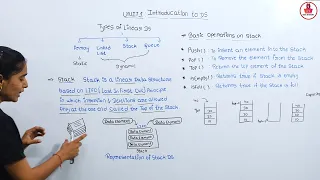 Unit-1 Introduction to DS
Types of Linear DS
Array
Linked
List
Stack
Queue
Static
Dynamic
→ Stack: Stack is a linear Data Structure
Based on LIFO (Last in First Out) Principle
in which insertion & deletions are allowed
only at the one end called the Top of the Stack
Data Element
Data Element
Data Element
Data Element
Data Element
Stack
Representation of Stack DS
* Basic operations on Stack
* Push() : to insert an element into the stack
* Pop() : to Remove the element from the stack
* Top() : Returns top element of the stack
* isEmpty() : Returns true if stack is empty
* isFull() : Returns true if the stack is full